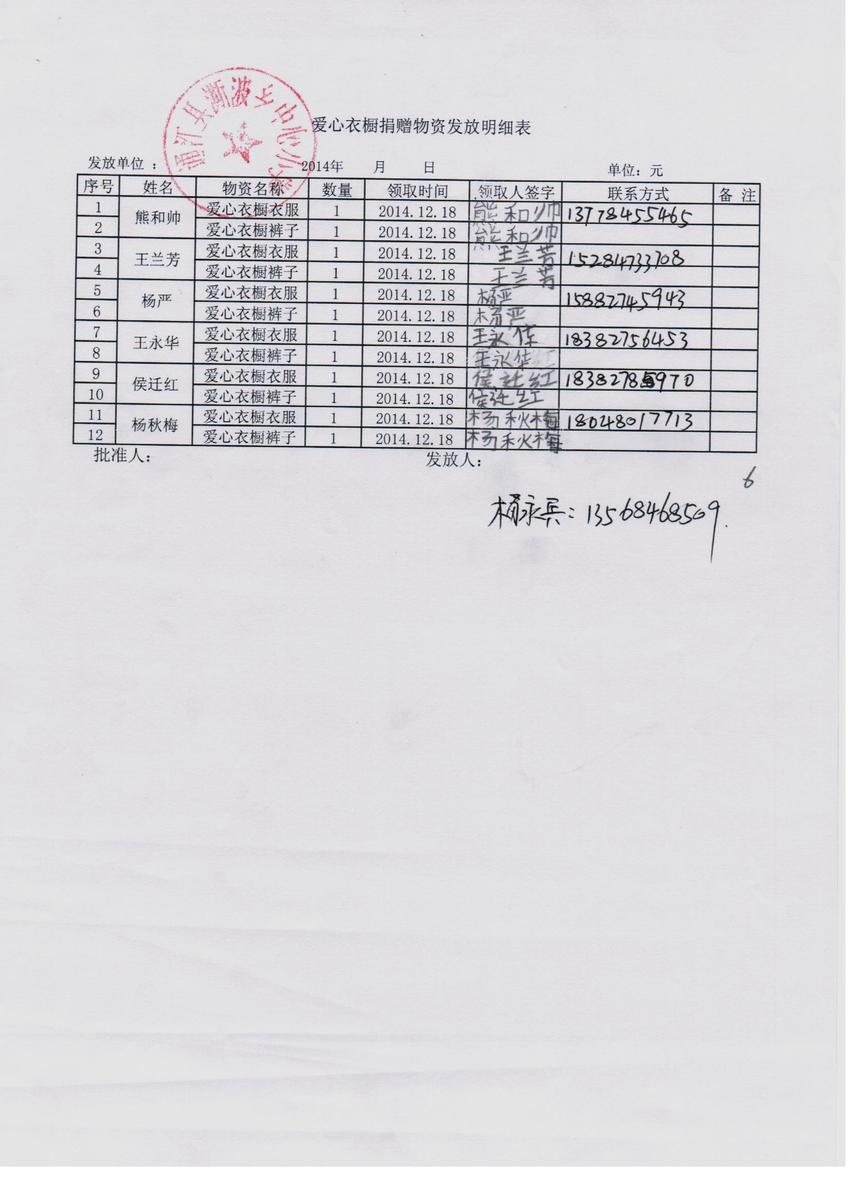 通江县澌波乡中心小学
爱心衣橱捐赠物资发放明细表
发放单位： 2014年 月 日 单位：元
序号 姓名 物资名称 数量 领取时间 领取人签字 联系方式 备 注
1 熊和帅 爱心衣橱衣服 1 2014.12.18 熊和帅 13778455465
2 爱心衣橱裤子 1 2014.12.18 熊和帅
3 王兰芳 爱心衣橱衣服 1 2014.12.18 王兰芳 15284733708
4 爱心衣橱裤子 1 2014.12.18 王兰芳
5 杨严 爱心衣橱衣服 1 2014.12.18 杨严 15882745943
6 爱心衣橱裤子 1 2014.12.18 杨严
7 王永华 爱心衣橱衣服 1 2014.12.18 王永华 18382756453
8 爱心衣橱裤子 1 2014.12.18 王永华
9 侯迁红 爱心衣橱衣服 1 2014.12.18 侯迁红 18382785970
10 爱心衣橱裤子 1 2014.12.18 侯迁红
11 杨秋梅 爱心衣橱衣服 1 2014.12.18 杨秋梅 18048017713
12 爱心衣橱裤子 1 2014.12.18 杨秋梅
批准人： 发放人：
6
杨永兵：13568468509.